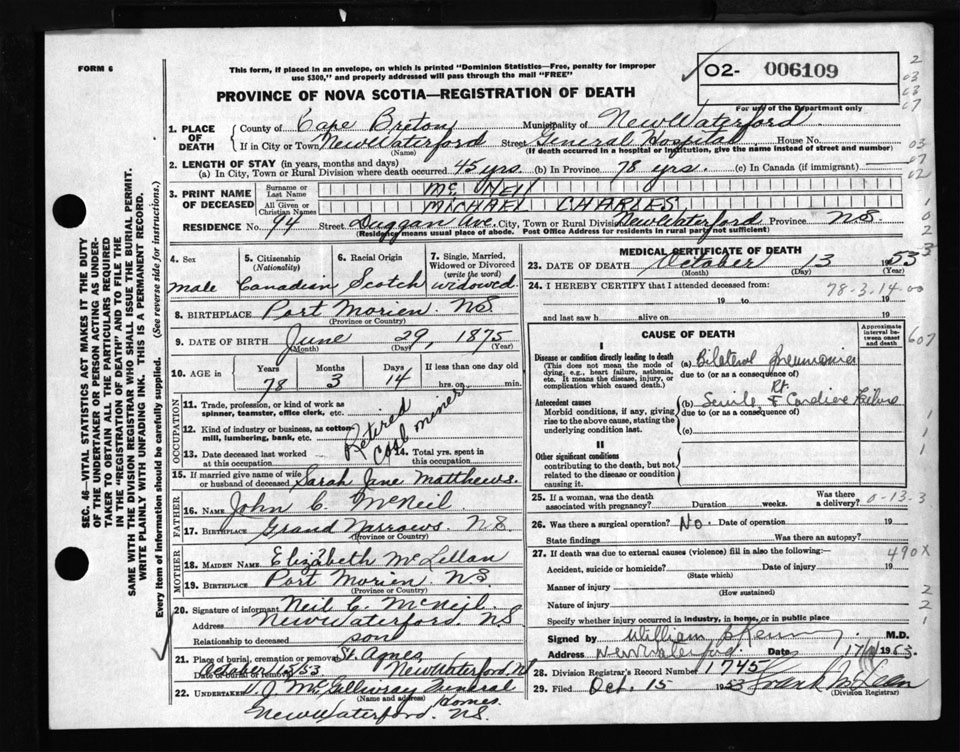 FORM 6
This form, if placed in an envelope, on which is printed "Dominion Statistics—Free, penalty for improper
use $300," and properly addressed will pass through the mail "FREE"
02- 006109
For use of the Department only
PROVINCE OF NOVA SCOTIA—REGISTRATION OF DEATH
1. PLACE OF DEATH
County of Cape Breton Municipality of New Waterford
If in City or Town New Waterford Street General Hospital House No.
(Name) (If death occurred in a hospital or institution, give the name instead of street and number)
2. LENGTH OF STAY (in years, months and days)
(a) In City, Town or Rural Division where death occurred 45 yrs. (b) In Province 78 yrs. (c) In Canada (if immigrant)
3. PRINT NAME OF DECEASED
Surname or Last Name McNeil
All Given or Christian Names MICHAEL CHARLES
RESIDENCE No. 94 Street Duggan Ave. City, Town or Rural Division New Waterford Province N.S
(Residence means usual place of abode. Post Office Address for residents in rural party not sufficient)
4. Sex
male
5. Citizenship (Nationality)
Canadian
6. Racial Origin
Scotch
7. Single, Married, Widowed or Divorced (write the word)
widowed
8. BIRTHPLACE Port Morien. N.S.
(Province or Country)
9. DATE OF BIRTH June 29, 1875
(Month) (Day) (Year)
10. AGE in Years Months Days If less than one day old
78 3 14 hrs. or min.
OCCUPATION
11. Trade, profession, or kind of work as spinner, teamster, office clerk, etc.
12. Kind of industry or business, as cotton-mill, lumbering, bank, etc.
Retired coal miner
13. Date deceased last worked at this occupation
14. Total yrs. spent in this occupation
15. If married give name of wife or husband of deceased Sarah Jane Matthews.
FATHER
16. Name John C. McNeil
17. Birthplace Grand Narrows. N.S.
(Province or Country)
MOTHER
18. Maiden Name Elizabeth McLellan
19. Birthplace Port Morien. N.S.
(Province or Country)
20. Signature of informant Neil C. McNeil.
Address New Waterford N.S
Relationship to deceased son
21. Place of burial, cremation or removal St. Agnes New Waterford, N.S
Date of burial or removal October 15/53
22. Undertaker J. McGillivray Funeral Homes.
(Name and address)
New Waterford. N.S.
MEDICAL CERTIFICATE OF DEATH
23. DATE OF DEATH October 13 1953
(Month) (Day) (Year)
24. I HEREBY CERTIFY that I attended deceased from:
78-3-14-00
19 to 19
and last saw h alive on 19
CAUSE OF DEATH
Approximate interval between onset and death
I
Disease or condition directly leading to death
(This does not mean the mode of dying, e.g., heart failure, asthenia, etc. It means the disease, injury, or complication which caused death.)
(a) Bilateral Pneumonia
due to (or as a consequence of)
Antecedent causes
Morbid conditions, if any, giving rise to the above cause, stating the underlying condition last.
Rt.
(b) Senile & Cardiac Failure
due to (or as a consequence of)
(c)
II
Other significant conditions
contributing to the death, but not related to the disease or condition causing it.
25. If a woman, was the death associated with pregnancy? Duration weeks. Was there a delivery?
0-13-3
26. Was there a surgical operation? No. Date of operation
State findings Was there an autopsy?
27. If death was due to external causes (violence) fill in also the following:—
490X
Accident, suicide or homicide? Date of injury 19
(State which)
Manner of injury
(How sustained)
Nature of injury
Specify whether injury occurred in industry, in home, or in public place
Signed by William M.D.
Address New Waterford. Date 1953.
28. Division Registrar's Record Number 1745
29. Filed Oct. 15 1953 Frank
(Division Registrar)
SEC. 46—VITAL STATISTICS ACT MAKES IT THE DUTY
OF THE UNDERTAKER OR PERSON ACTING AS UNDER-
TAKER TO OBTAIN ALL THE PARTICULARS REQUIRED
IN THE "REGISTRATION OF DEATH" AND TO FILE THE
SAME WITH THE DIVISION REGISTRAR WHO SHALL ISSUE THE BURIAL PERMIT.
WRITE PLAINLY WITH UNFADING INK. THIS IS A PERMANENT RECORD.
Every item of information should be carefully supplied. (See reverse side for instructions.)
2
03
03
07
03
07
02
1
0
2
3
607
1
1
1
2
2
1